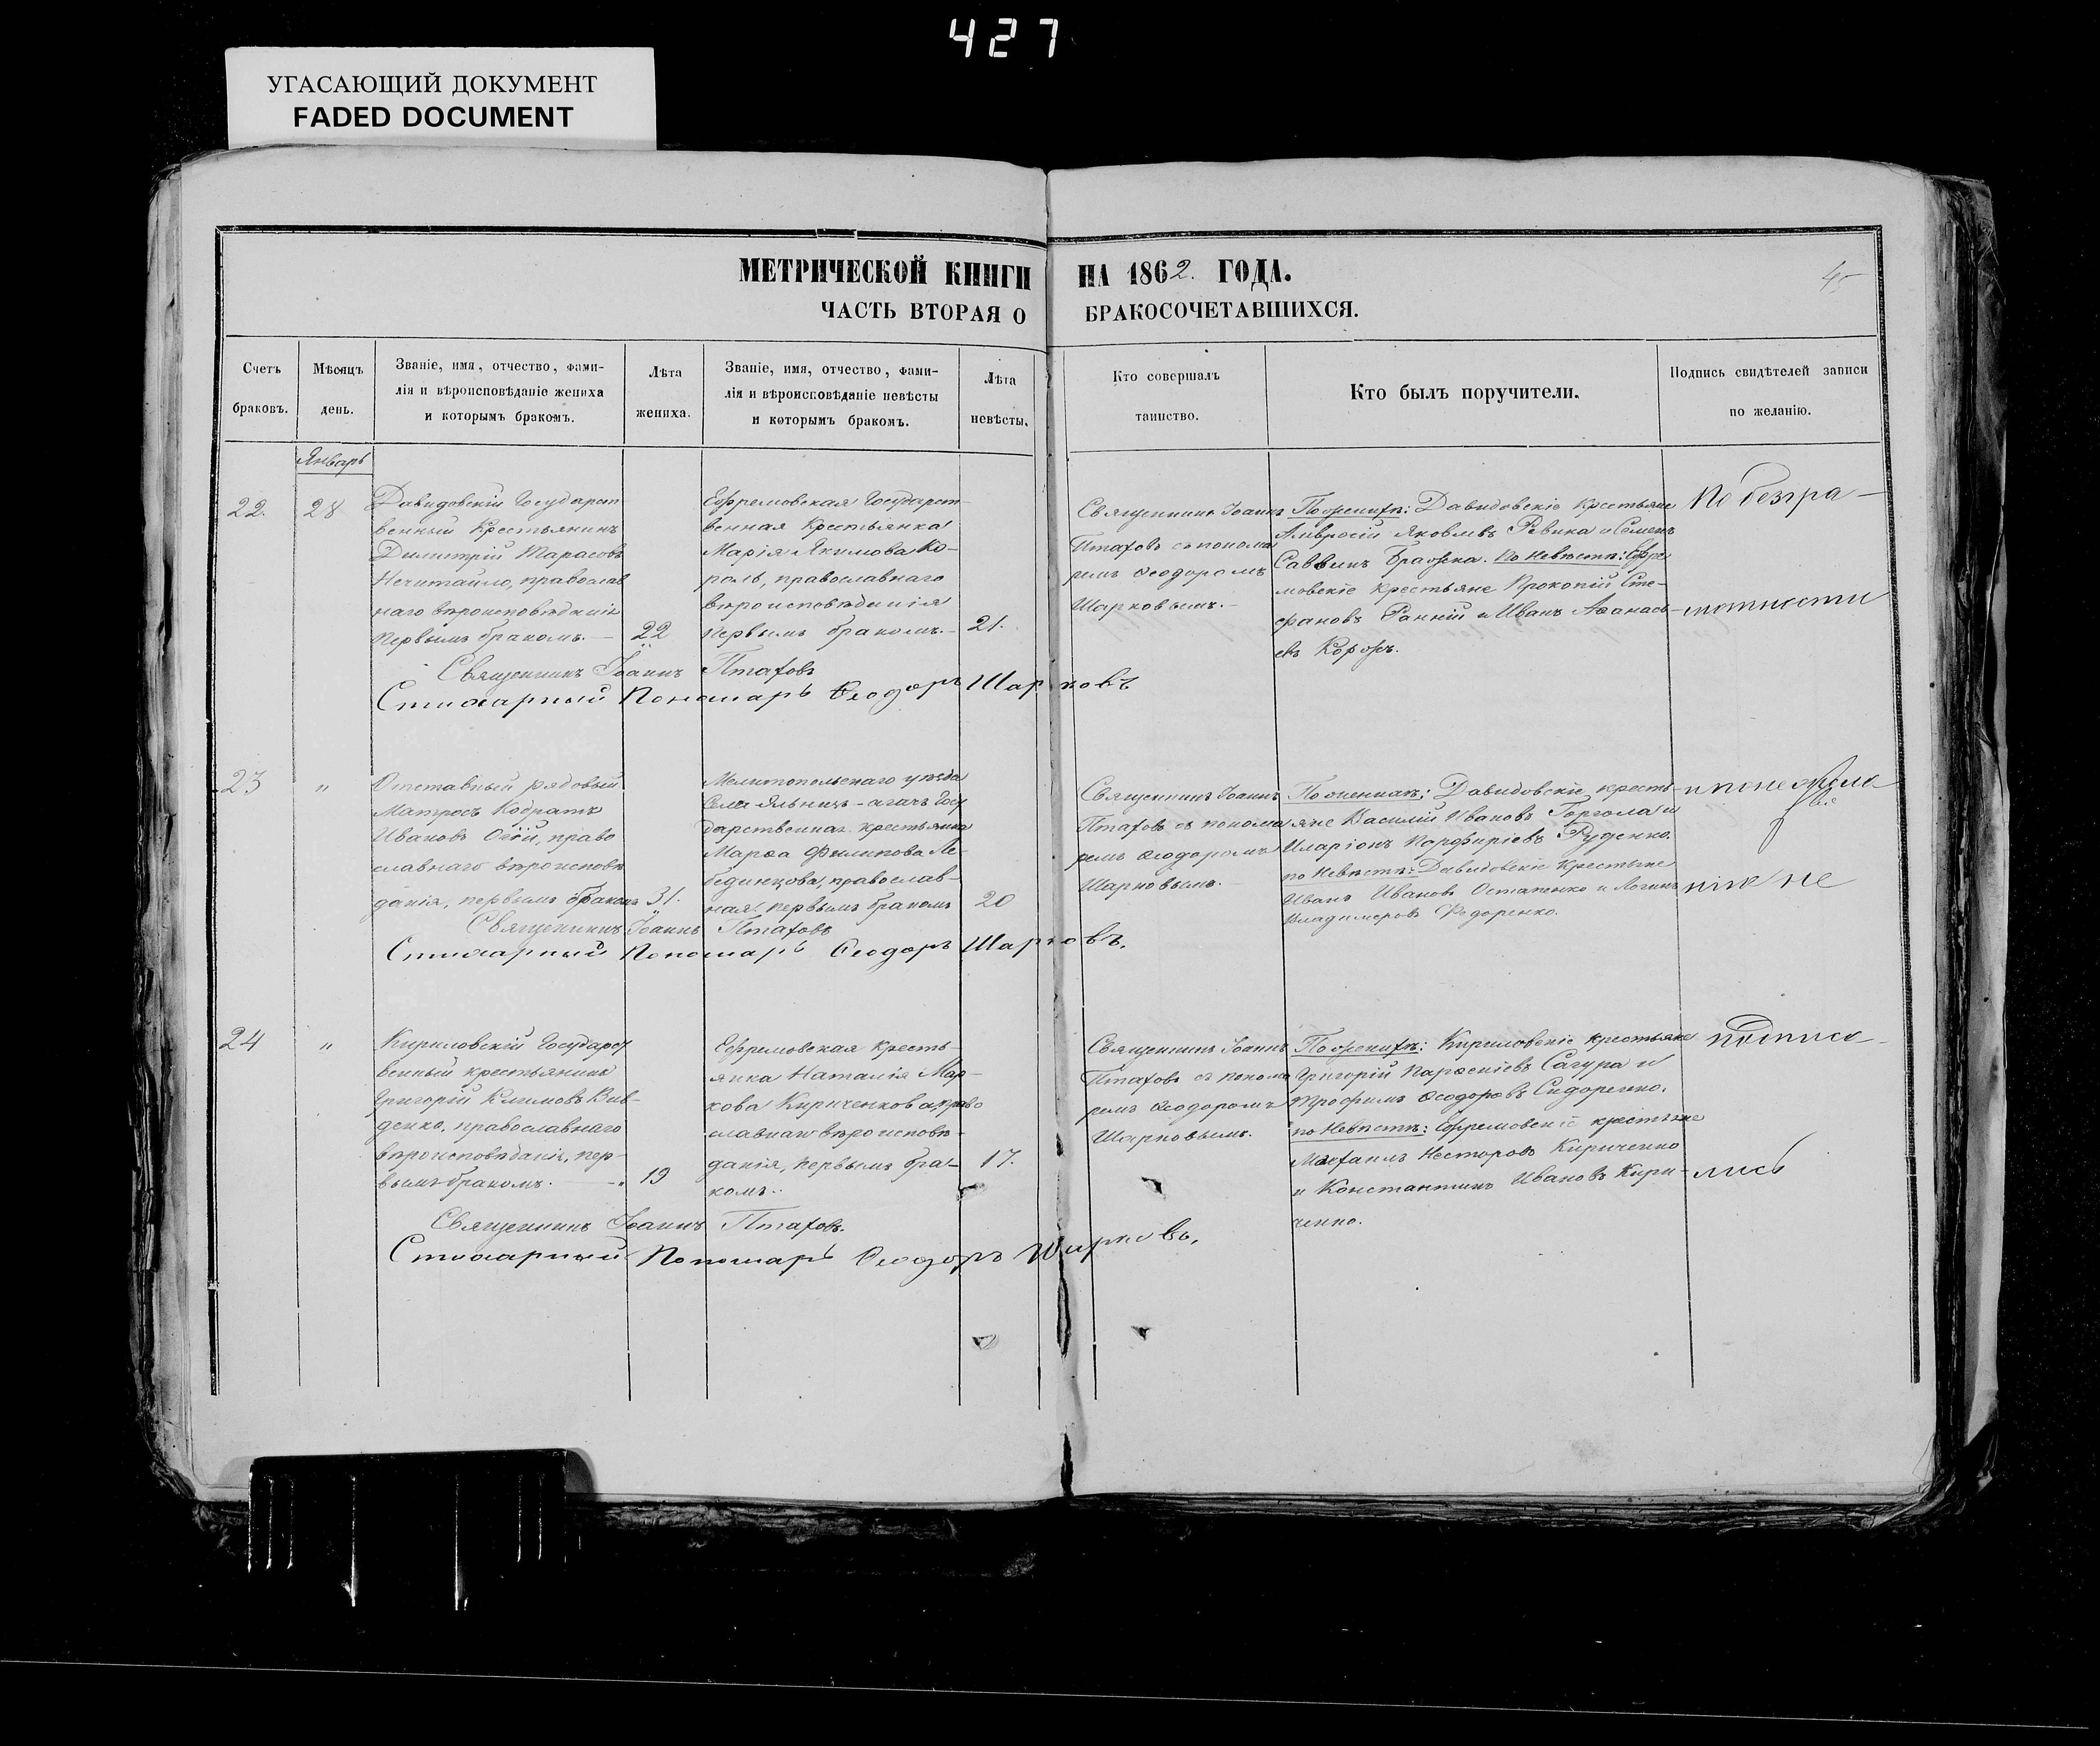 427
УГАСАЮЩИЙ ДОКУМЕНТ
FADED DOCUMENT
МЕТРИЧЕСКОЙ КНИГИ НА 1862. ГОДА.
45
ЧАСТЬ ВТОРАЯ О БРАКОСОЧЕТАВШИХСЯ.
Счетъ
браковъ.
Мѣсяцъ
день.
Званіе, имя, отчество, фами-
лія и вѣроисповѣданіе жениха
и которымъ бракомъ.
Лѣта
жениха.
Званіе, имя, отчество, фами-
лія и вѣроисповѣданіе невѣсты
и которымъ бракомъ.
Лѣта
невѣсты.
Кто совершалъ
таинство.
Кто былъ поручители.
Подпись свидѣтелей записи
по желанію.
Январь
22.
28
Давидовскій Государст
венный Крестьянинъ
Димитрій Тарасовъ
Нечитайло, православ
наго вѣроисповѣданія
первымъ бракомъ.
22
Ефремовская Государст-
венная Крестьянка
Марія Якимова Ко-
роль, православнаго
вѣроисповѣданія
первымъ бракомъ.
21.
Священникъ Іоаннъ
Птаховъ съ понома
ремъ Ѳеодоромъ
Шарковымъ.
По женихѣ: Давидовскіе Крестьяне
Амвросій Яковлевъ Ревика и Семенъ
Саввинъ Бражка. По Невѣстѣ: Ефре
мовскіе Крестьяне Прокопій Сте-
фановъ Ранній и Иванъ Аѳанась
евъ Корожъ.
По безгра-
мотности
Священникъ Іоаннъ Птаховъ
Стихарный Пономарь Ѳеодоръ Шарковъ
23
"
Отставный рядовый
Матросъ Кодратъ
Ивановъ Огій, право
славнаго вѣроисповѣ
данія, первымъ бракомъ
31.
Мелитопольскаго уѣзда
Села Яльницъ-агачъ Госу
дарственная крестьянка
Марѳа Филипова Ле-
бединцова, православ-
ная. первымъ бракомъ
20
Священникъ Іоаннъ
Птаховъ съ понома
ремъ Ѳеодоромъ
Шарковымъ.
По женихѣ: Давидовскіе кресть-
яне Василій Ивановъ Горгола и
Иларіонъ Порфиріевъ Руденко.
по Невѣстѣ: Давидовскіе Крестьяне
Иванъ Ивановъ Остапенко и Логинъ
Владимеровъ Ѳедоренко.
и по не жела
нію не
Священникъ Іоаннъ Птаховъ
Стихарный Пономарь Ѳеодоръ Шарковъ.
24
"
Кириловскій Государст
венный крестьянинъ
Григорій Климовъ Вив-
денко, православнаго
вѣроисповѣданія, пер-
вымъ бракомъ.
19
Ефремовская кресть-
янка Наталія Мар-
кова Кириченкова, право
славнаго вѣроисповѣ-
данія, первымъ бра-
комъ.
17.
Священникъ Іоаннъ
Птаховъ съ понома
ремъ Ѳеодоромъ
Шарковымъ.
По женихѣ: Кириловскіе крестьяне
Григорій Параскіевъ Сагура и
Трофимъ Ѳеодоровъ Сидоренко.
по Невѣстѣ: Ефремовскіе крестьяне
Михаилъ Несторовъ Кириченко
и Константинъ Ивановъ Кири-
ченко.
подписа-
лись
Священникъ Іоаннъ Птаховъ.
Стихарный Пономарь Ѳеодоръ Шарковъ.